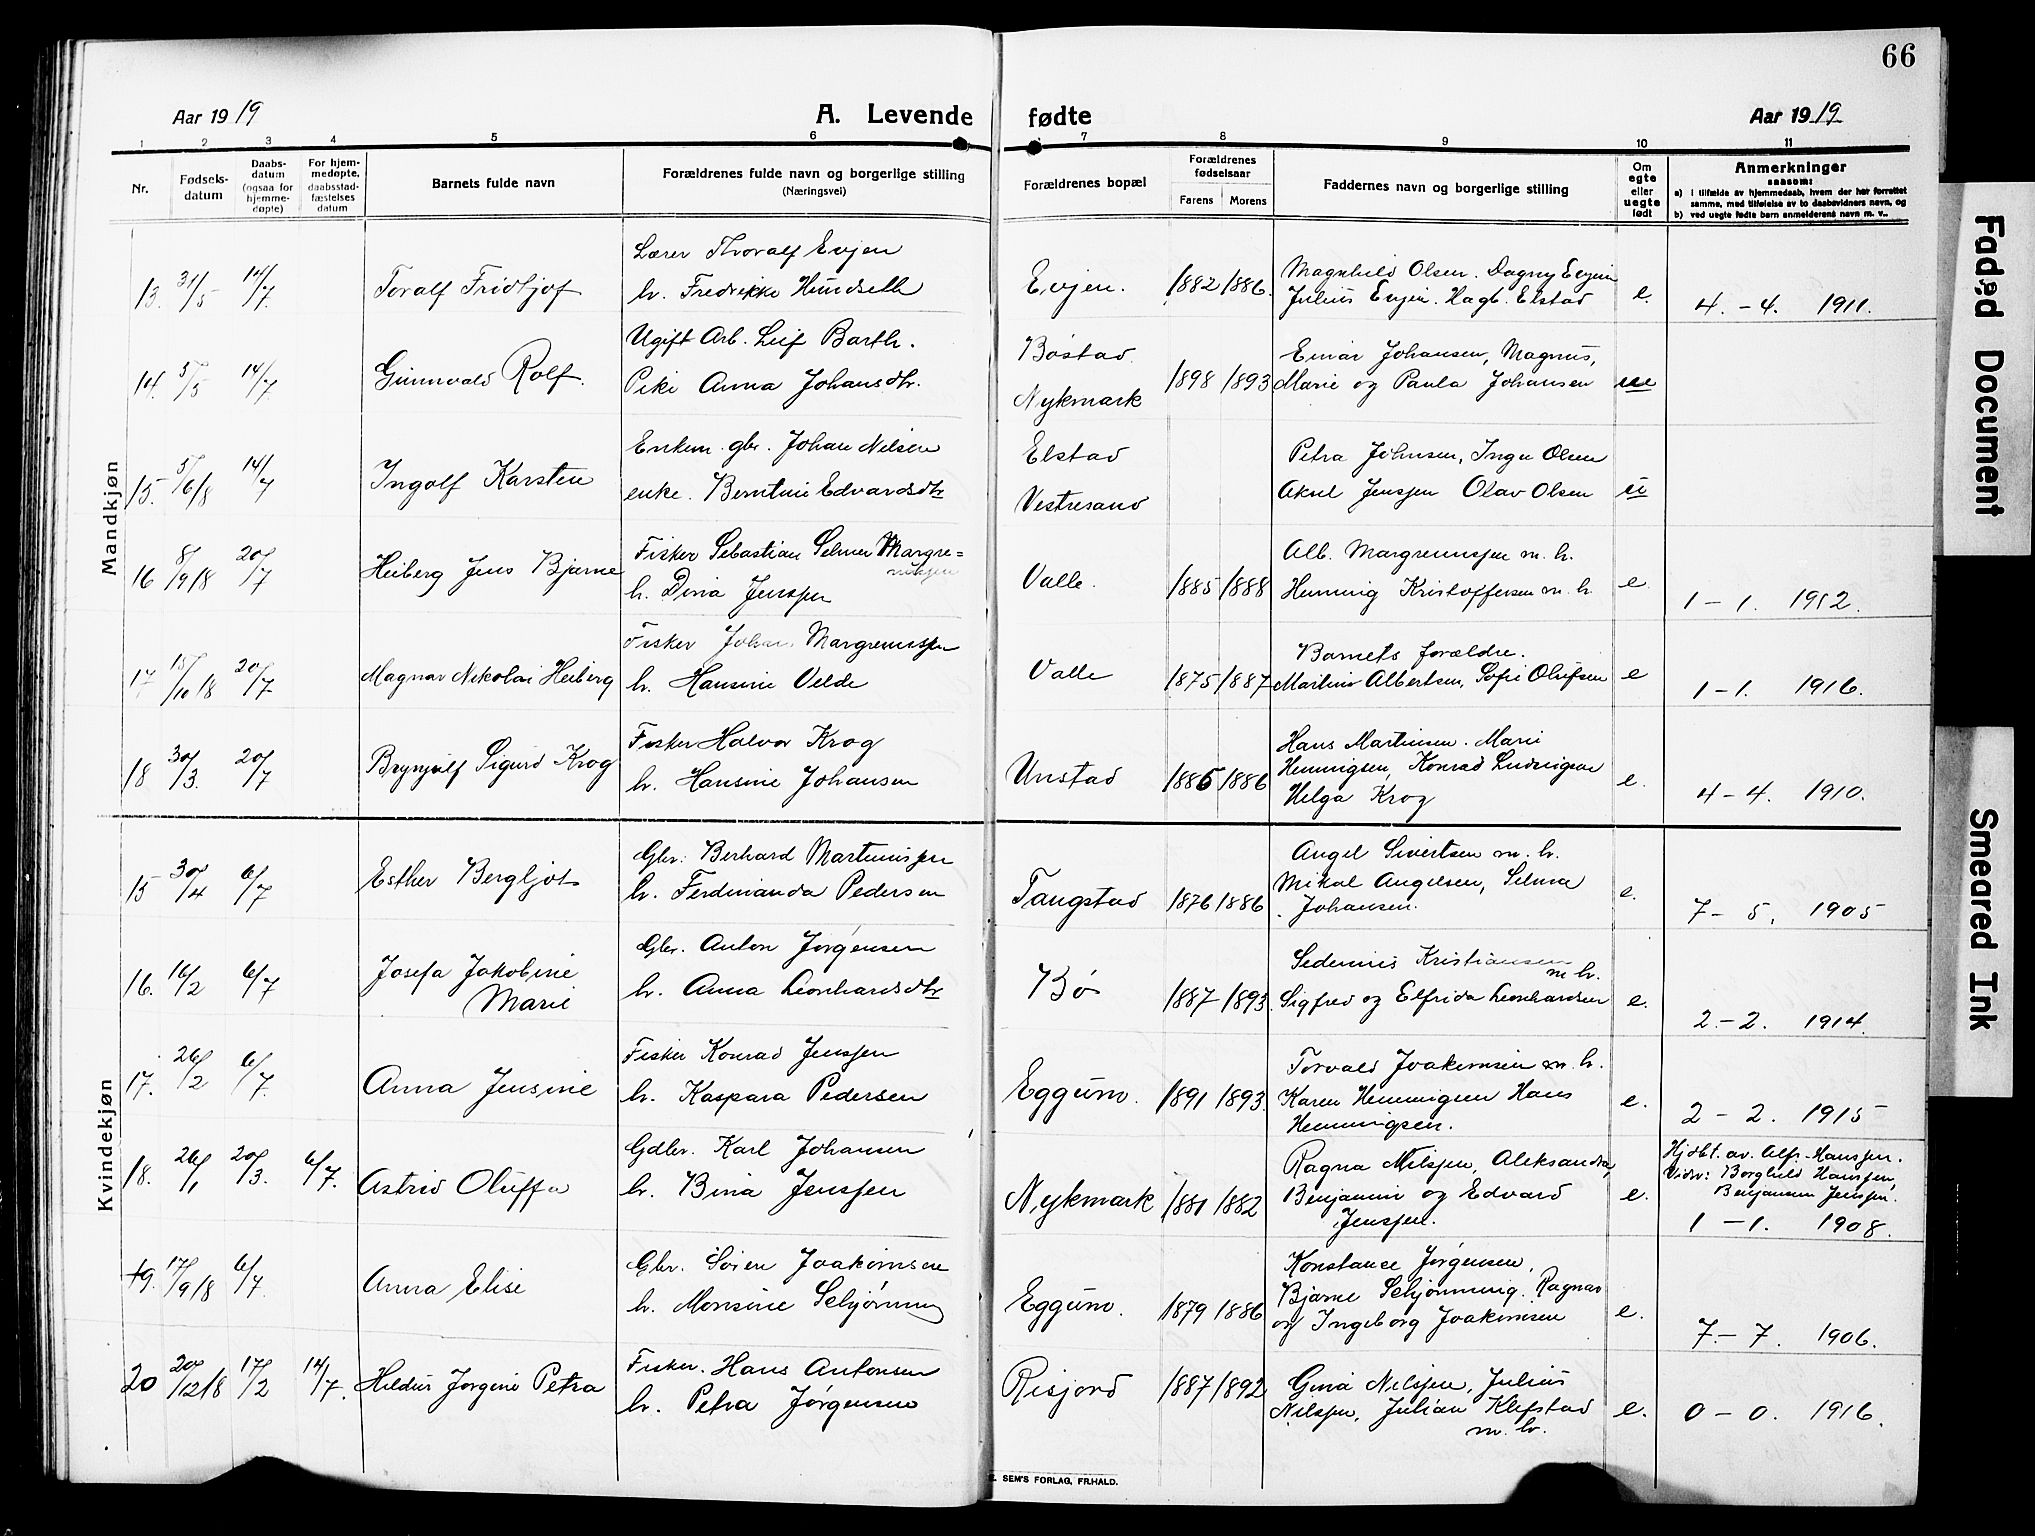 66
Aar 1919
A. Levende fødte
Aar 1919
1 2 3 4 5 6 7 8 9 10 11
Nr.
Fødselsdatum
Daabsdatum (ogsaa for hjemmedøpte)
For hjemmedøpte, daabsstadfæstelses datum
Barnets fulde navn
Forældrenes fulde navn og borgerlige stilling
(Næringsvei)
Forældrenes bopæl
Forældrenes fødselsaar
Farens Morens
Faddernes navn og borgerlige stilling
Om egte eller uegte født
Anmerkninger
saasom:
a) i tilfælde av hjemmedaab, hvem der har forrettet samme, med tilføielse av to daabsvidners navn, og
b) ved uegte fødte barn anmelderens navn m. v..
Mandkjøn
13. 31/5 14/7 Toralf Fridtjof
Lærer Thoralf Evjen
h. Fredrikke Hundseth
Evjen. 1882 1886.
Magnhild Olsen. Dagny Evjen
Julius Evjen. Hagb. Elstad
e. 4. - 4. 1911.
14. 5/5 14/7 Gunnvald Rolf.
Ugift Arb. Leif Barth.
Pike Anna Johansdtr.
Bøstad.
Nykmark
1898 1893
Einar Johansen, Magnus,
Marie og Paula Johansen
ue
15. 5/6 18 14/7 Ingolf Karsten
Enkem. gbr. Johan Nilsen
enke. Berntine Edvardsdtr
Elstad
Vestresand
Petra Johnsen, Inga Olsen
Aksel Jenssen Olav Olsen
u
16 8/9 18 20/7 Heiberg Jens Bjarne
Fisker Sebastian Selmer Margre=
nussen
h. Dina Jenssen
Valle. 1885 1888
Alb. Margrenussen m. h.
Henning Kristoffersen m. h.
e. 1 - 1. 1912.
17 15/10 18 20/7 Magnar Nikolai Heiberg
Fisker Johan Margrenussen
h. Hansine Velde
Valle 1875 1887
Barnets forældre.
Martin Albertsen, Sofie Olufsen
e 1 - 1. 1916.
18 30/3. 20/7 Brynjulf Sigurd Krog
Fisker Halvor Krog
h. Hansine Johansen
Unstad 1886 1886
Hans Martinsen. Marie
Henningsen, Konrad Ludvigsen
Helga Krog
e. 4 - 4. 1910.
Kvindekjøn
15 30/4 6/7 Esther Bergljot
Gbr. Berhard Martinussen
h. Ferdinanda Pedersen
Tangstad 1876 1886
Angel Sivertsen m. h.
Mikal Angelsen, Selma
Johansen.
e. 7 - 5. 1905
16. 16/2 6/7 Josefa Jakobine
Marie
Gbr. Anton Jørgensen
h. Anna Leonhardsdtr
Bø 1887 1893.
Kristiansen
m h.
Sigfred og Elfrida Leonhardsen
e. 2. - 2. 1914.
17. 26/2 6/7. Anna Jensine
Fisker Konrad Jenssen
h. Kaspara Pedersen
Eggum. 1891 1893.
Torvald Joakimsen m. h.
Karen Henningsen Hans
Henningsen.
e. 2 - 2. 1915
18. 26/1 20/3. 6/7. Astrid Oluffa
Gdbr. Karl Johansen
h. Bina Jenssen
Nykmark 1881 1882
Ragna Nilssen, Aleksandra,
Benjamin og Edvard
Jenssen.
e.
Hjdbt. av. Alfr. Hanssen.
Vidn: Borghild Hanssen,
Benjamin Jenssen.
1 - 1. 1908.
19. 17/9 18 6/7. Anna Elise
Gbr. Søren Joakimsen
h. Monsine Schjønning
Eggum. 1879 1886
Konstance Jørgensen,
Bjarne Schjønning. Ragnar
og Ingeborg Joakimsen
e. 7. - 7. 1906.
20 20/12 18 17/2 14/7. Hildur Jørgine Petra
Fisker. Hans Antonsen
h. Petra Jørgensen
Risjord 1887 1892
Gina Nilssen, Julius
Nilssen, Julian Klefstad
m. h.
e. 0 - 0. 1916.
E. SEM'S FORLAG, FR.HALD.
Faded Document
Smeared Ink